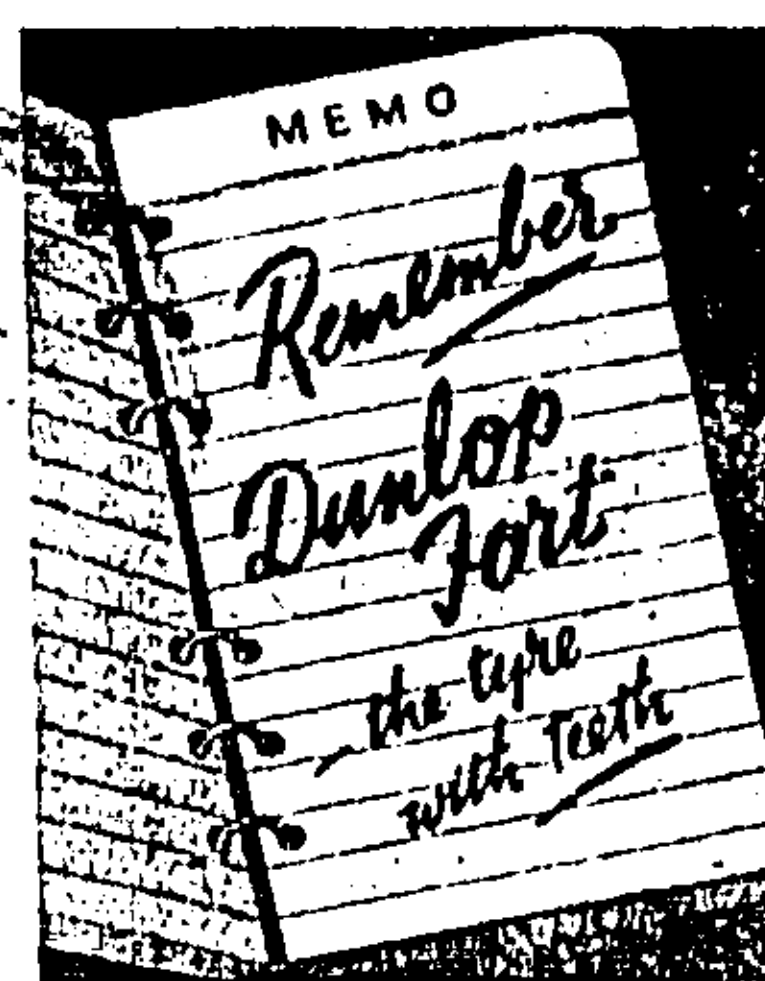 MEMO
Remember
Dunlop
Fort
- the tyre
with Teeth